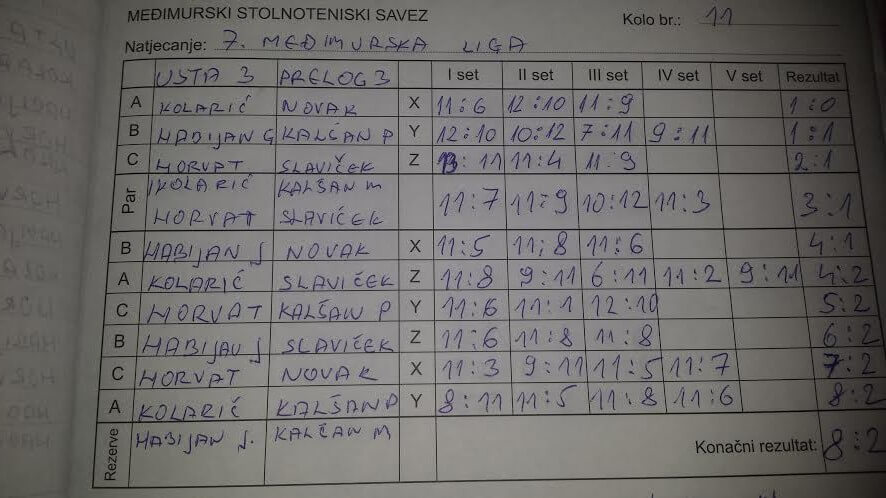 MEĐIMURSKI STOLNOTENISKI SAVEZ Kolo br.: 11
Natjecanje: 7. MEĐIMURSKA LIGA
USTA 3 PRELOG 3 I set II set III set IV set V set Rezultat
A KOLARIĆ NOVAK X 11:6 12:10 11:9 1:0
B HABIJAN G KALŠAN P Y 12:10 10:12 7:11 9:11 1:1
C HORVAT SLAVIČEK Z 13:11 11:4 11:9 2:1
Par KOLARIĆ KALŠAN M
HORVAT SLAVIČEK 11:7 11:9 10:12 11:3 3:1
B HABIJAN J NOVAK X 11:5 11:8 11:6 4:1
A KOLARIĆ SLAVIČEK Z 11:8 9:11 6:11 11:2 9:11 4:2
C HORVAT KALŠAN P Y 11:6 11:1 12:10 5:2
B HABIJAN J SLAVIČEK Z 11:6 11:8 11:8 6:2
C HORVAT NOVAK X 11:3 9:11 11:5 11:7 7:2
A KOLARIĆ KALŠAN P Y 8:11 11:5 11:8 11:6 8:2
Rezerve HABIJAN J. KALŠAN M Konačni rezultat: 8:2